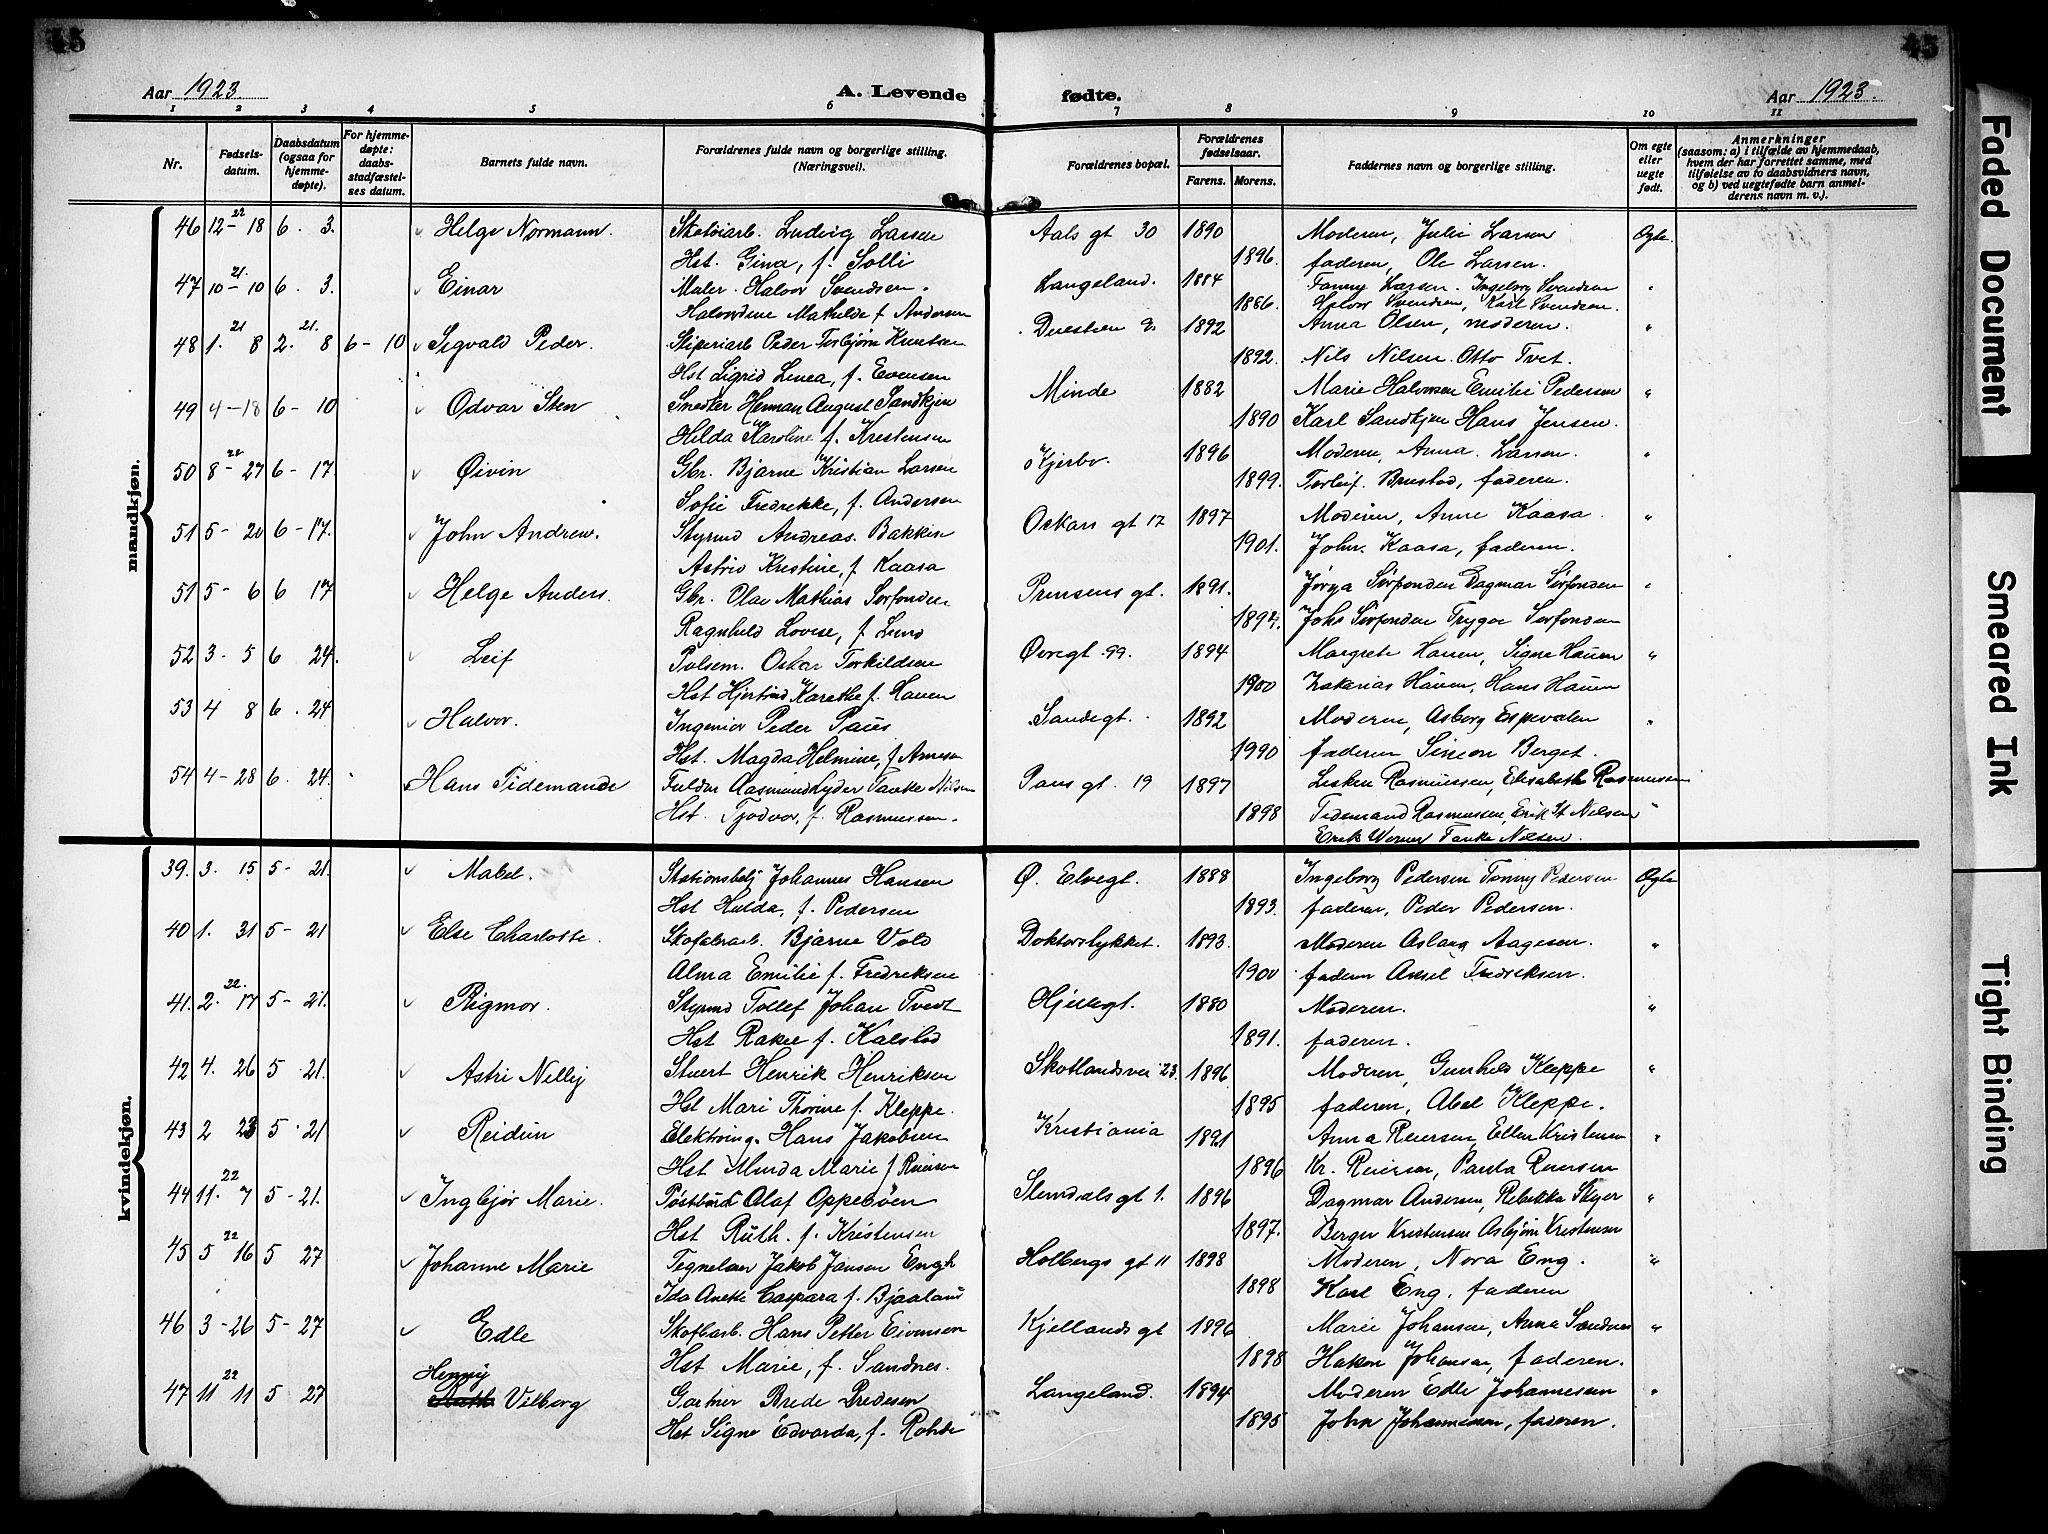 45 45
Aar 1923. A. Levende fødte. Aar 1923.
1 2 3 4 5 6 7 8 9 10 11
Nr. Fødsels-datum. Daabsdatum (ogsaa for hjemme-døpte). For hjemme-døpte: daabs-stadfæstel-ses datum. Barnets fulde navn. Forældrenes fulde navn og borgerlige stilling. (Næringsvei). Forældrenes bopæl. Forældrenes fødselsaar. Farens. Morens. Faddernes navn og borgerlige stilling. Om egte eller uegte født. Anmerkninger (saasom: a) i tilfælde av hjemmedaab, hvem der har forrettet samme, med tilføielse av to daabsvidners navn, og b) ved uegtefødte barn anmel-derens navn m. v.).
mandkjøn.
46 12-22 18 6. 3. Helge Normann. Skotøiarb. Ludvig Larsen Aals gt 30 1890 Moderen, Julie Larsen Ogte.
Hst. Gina, f. Solli 1896. faderen, Ole Larsen.
47 10-21 10 6. 3. Einar Maler. Halvor Svendsen. Langeland. 1884 Fanny Larsen. Ingeborg Svendsen "
Halvordine Mathilde f Andersen 1886. Halvor Svendsen, Karl Svendsen.
48 1. 21 8 2. 21. 8 6-10 Sigvald Peder. Peder Torbjørn Knutsen 1892 Anna Olsen, moderen. "
Hst Sigrid Linea, f. Evensen 1892. Nils Nilsen. Otto Tvet.
49 4-18 6-10 Odvar Sten Snedker Herman August Sandkjen Minde 1882 Marie Halvorsen Emilie Pedersen "
Hilda Karoline f. Kristensen 1890 Karl Sandkjen Hans Jensen.
50 8-22 27 6-17 Øivin Gbr. Bjarne Kristian Larsen Kjerbr. 1896 Moderen, Anna. Larsen. "
Sofie Fredrekke, f. Andersen 1899. Torleif. Brustad, faderen.
51 5-20 6-17. John Andrew. Styrmd Andreas. Bakken Oskars gt 17 1897 Moderen, Anne Kaasa. "
Astrid Kristine, f. Kaasa 1901. John. Kaasa, faderen.
51 5-6 6 17 Helge Anders. Gbr. Olav Mathias Sørfonden Prinsens gt. 1891. Jørga Sørfonden Dagmar Sørfonden "
Ragnhild Lovise, f. Lund 1894. Johs Sørfonden Trygve Sørfonden
52 3-5 6 24. Leif Polsem. Oskar Torkildsen Øvregt. 99. 1894 Margrete Hauen, Signe Hauen "
Hst Hjertind Karethe f. Hauen 1900 Zakarias Hauen, Hans Hauen
53 4 8 6. 24 Halvor. Ingeniør Peder Paus Sandegt. 1892 Moderen, Asborg Espevalen "
Hst. Magda Helmine, f Arnesen 1990 faderen Simon Berget.
54 4-28 6. 24. Hans Tidemande Aasmund Lyder Tanke Nilsen Paus gt. 19 1897 Lisken Rasmussen, Elisabeth Rasmussen
Hst. Tjodvor, f. Rasmussen. 1898 Tidemand Rasmussen, Erik St Nilsen "
Erik Werner Tanke Nilsen.
kvindekjøn.
39. 3. 15 5-21. Mabel. Stationsbetj Johannes Hansen Ø. Elvegt. 1888 Ingeborg Pedersen Tonny Pedersen Ogte
Hst Hulda, f. Pedersen 1893. faderen, Peder Pedersen.
40 1. 31 5-21 Else Charlotte. Skofabrarb. Bjarne Vold Doktorslykket. 1893. Moderen Aslaug Aagesen. "
Alma Emilie f. Fredriksen 1900 faderen Aksel Fredriksen.
41. 2. 22. 17 5-21. Rigmor. Styrmd Tollef Johan Tvedt Hjellegt. 1880 Moderen. "
Hst Rakel f. Kalstad 1891. faderen.
42 4. 26 5 21. Astri Nelly Stuert Henrik Henriksen Skotlandsvei 23. 1896 Moderen, Gunhild Kleppe "
Hst Mari Thorine f. Kleppe. 1895 faderen, Abel Kleppe.
43 2 23 5. 21 Reidun Elektroing. Hans Jakobsen Kristiania 1891 Anna Reiersen, Ellen Kristensen "
Hst Minda Marie f Reiersen 1896 Kr. Reiersen, Paula Reiersen
44 11. 22 7 5-21. Ingbjør Marie. Postbud Olaf Oppebøen Slemdals gt 1. 1896 Dagmar Andersen, Rebekka Styer "
Hst Ruth. f. Kristensen 1897. Berger Kristensen Asbjørn Kristensen
45 5 22 16 5 27 Johanne Marie Jakob Jansen Engh Holbergs gt 11 1898 Moderen, Nora Eng. "
Ida Anette Caspara f. Bjaaland 1898 Karl Eng. faderen
46 3-26 5-27 Edle Skofbarb. Hans Petter Eivensen Kjellands gt 1896 Marie Johansen, Anna Sandnes "
Hst Marie, f. Sandnes. 1898 Hakon Johansen, faderen.
Henny
47 11 22 11 5 27 Vilborg Gartner Brede Bredesen Langeland. 1894 Moderen Edle Johannesen "
Hst Signe Edvarda, f. Rohde 1895 John Johannesen, faderen.
Faded Document
Smeared Ink
Tight Binding